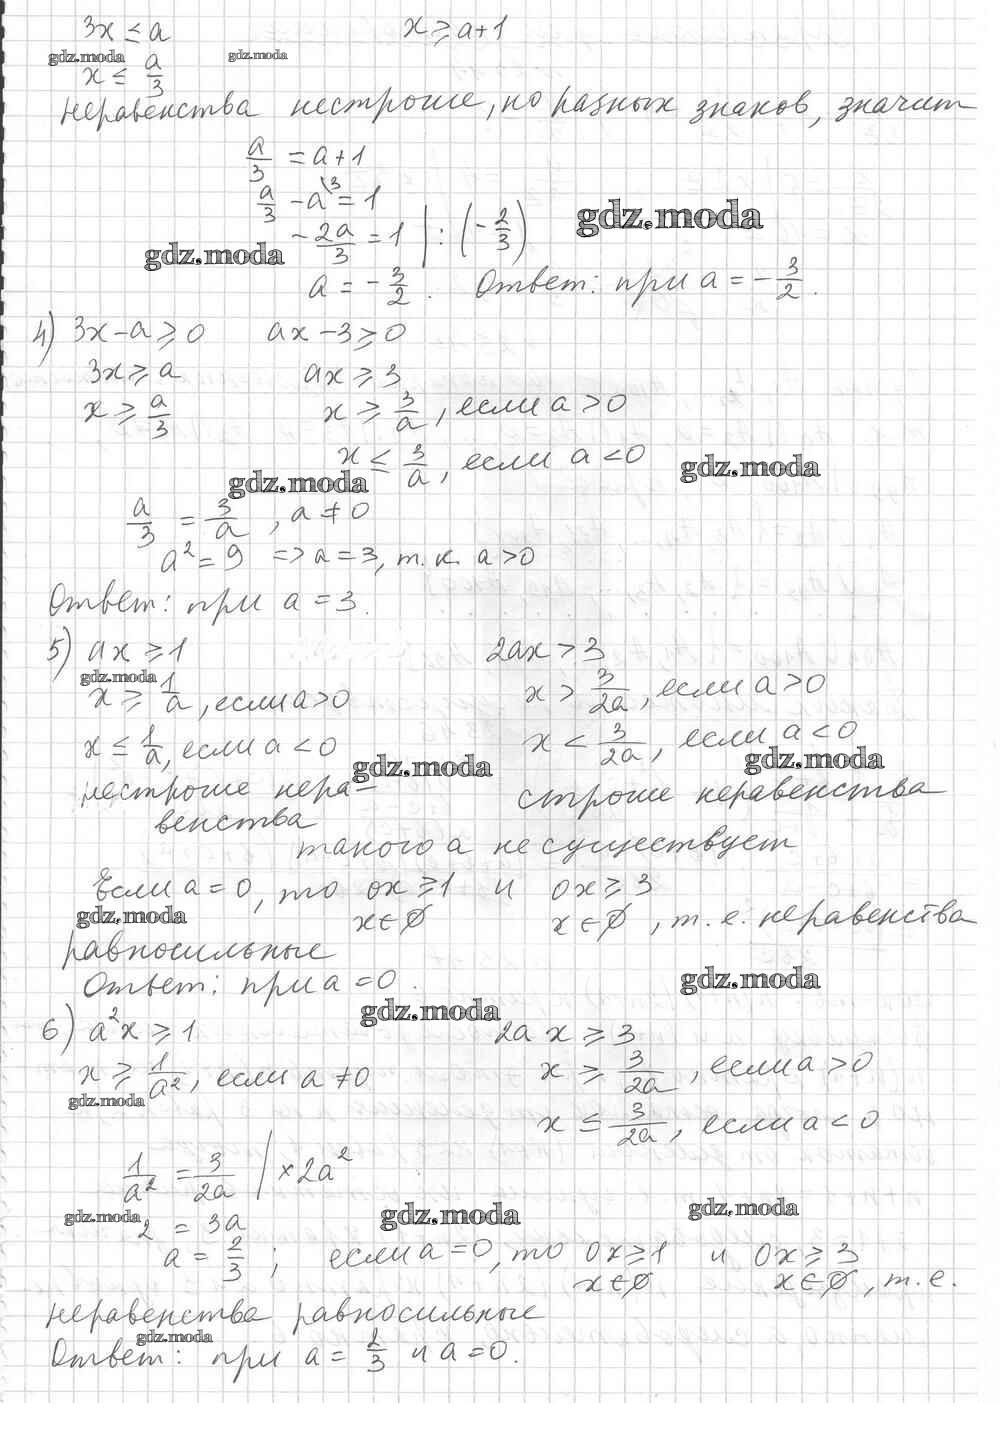 3x ≤ a     x ≥ a+1
gdz.moda     gdz.moda
x ≤ a/3
неравенства нестрогие, но разных знаков, значит
a/3 = a+1
a/3 - a\3 = 1     gdz.moda
gdz.moda     -2a/3 = 1 | : (-2/3)
a = -3/2.     Ответ: при a = -3/2.
4) 3x-a ≥ 0     ax-3 ≥ 0
3x ≥ a     ax ≥ 3
x ≥ a/3     x ≥ 3/a, если a > 0
x ≤ 3/a, если a < 0     gdz.moda
gdz.moda
a/3 = 3/a, a ≠ 0
a² = 9 => a = 3, т.к. a > 0
Ответ: при a = 3.
5) ax ≥ 1     2ax > 3
gdz.moda
x ≥ 1/a, если a > 0     x > 3/2a, если a > 0
x ≤ 1/a, если a < 0     x < 3/2a, если a < 0
gdz.moda     gdz.moda
нестрогие нера-     строгие неравенства
венства
такого a не существует
Если a = 0, то 0x ≥ 1 и 0x ≥ 3
gdz.moda     x ∈ ∅     x ∈ ∅, т.е. неравенства
равносильные
Ответ: при a = 0.     gdz.moda
gdz.moda
6) a²x ≥ 1     2ax ≥ 3
x ≥ 1/a², если a ≠ 0     x ≥ 3/2a, если a > 0
gdz.moda
x ≤ 3/2a, если a < 0
1/a² = 3/2a | ×2a²
gdz.moda     gdz.moda     gdz.moda
2 = 3a
a = 2/3; если a = 0, то 0x ≥ 1 и 0x ≥ 3
x ∈ ∅     x ∈ ∅, т.е.
неравенства равносильные
gdz.moda
Ответ: при a = 2/3 и a = 0.